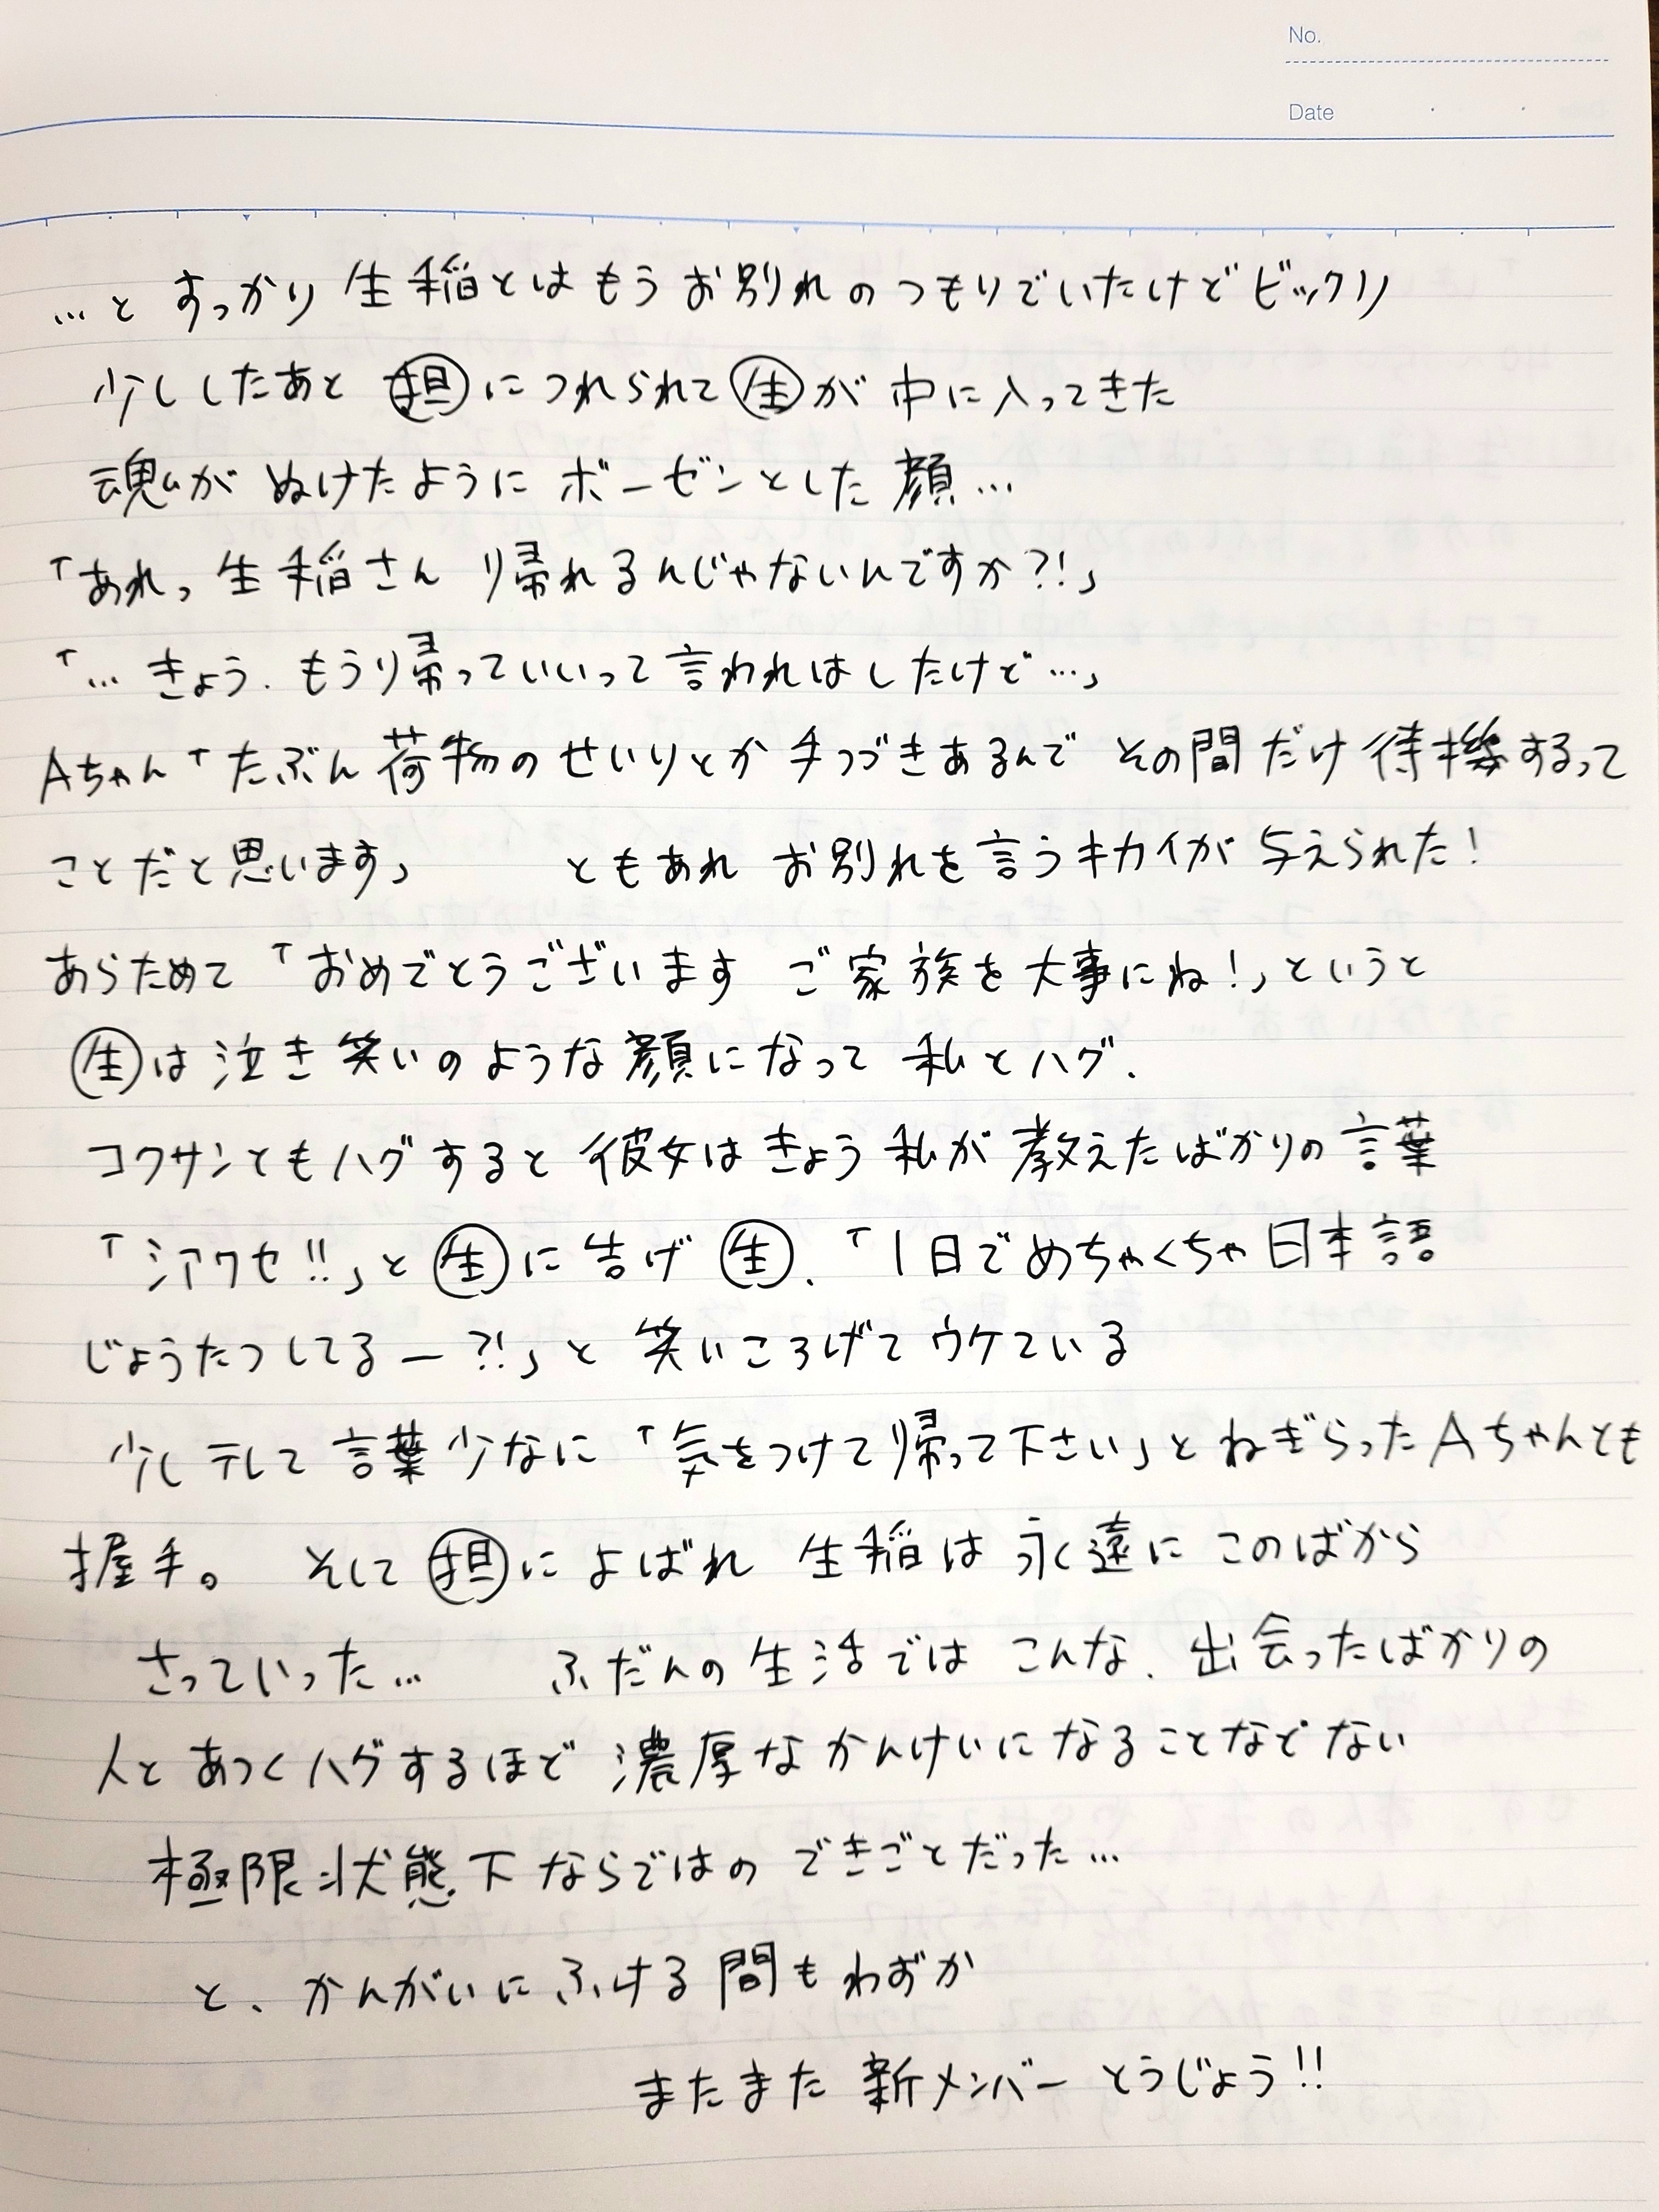 No.
Date
…と すっかり 生稲とはもうお別れのつもりでいたけどビックリ
少ししたあと ㊀担に つれられて ㊀生が 中に入ってきた
魂が ぬけたように ボーゼンとした 顔…
「あれっ 生稲さん 帰れるんじゃないんですか?!」
「… きょう、もう帰っていいって言われはしたけど…」
Aちゃん「たぶん荷物のせいりとか手つづきあるんで その間だけ待機するって
ことだと思います」 ともあれ お別れを言うキカイが 与えられた!
あらためて 「おめでとうございます ご家族を大事にね!」というと
生は泣き笑いのような顔になって 私とハグ、
コクサンともハグすると 彼女はきょう私が教えたばかりの言葉
「シアワセ!!」と生に告げ 生、「1日でめちゃくちゃ日本語
じょうたつしてるー?!」と 笑いころげてウケている
少しテレて言葉少なに「気をつけて帰って下さい」とねぎらったAちゃんとも
握手。 そして担によばれ 生稲は永く遠に このばから
さっていった… ふだんの生活では こんな、出会ったばかりの
人と あつくハグするほど 濃厚なかんけいになることなどない
極限状態下ならではの できごとだった…
と、かんがいにふける間もわずか
またまた 新メンバー とうじょう!!